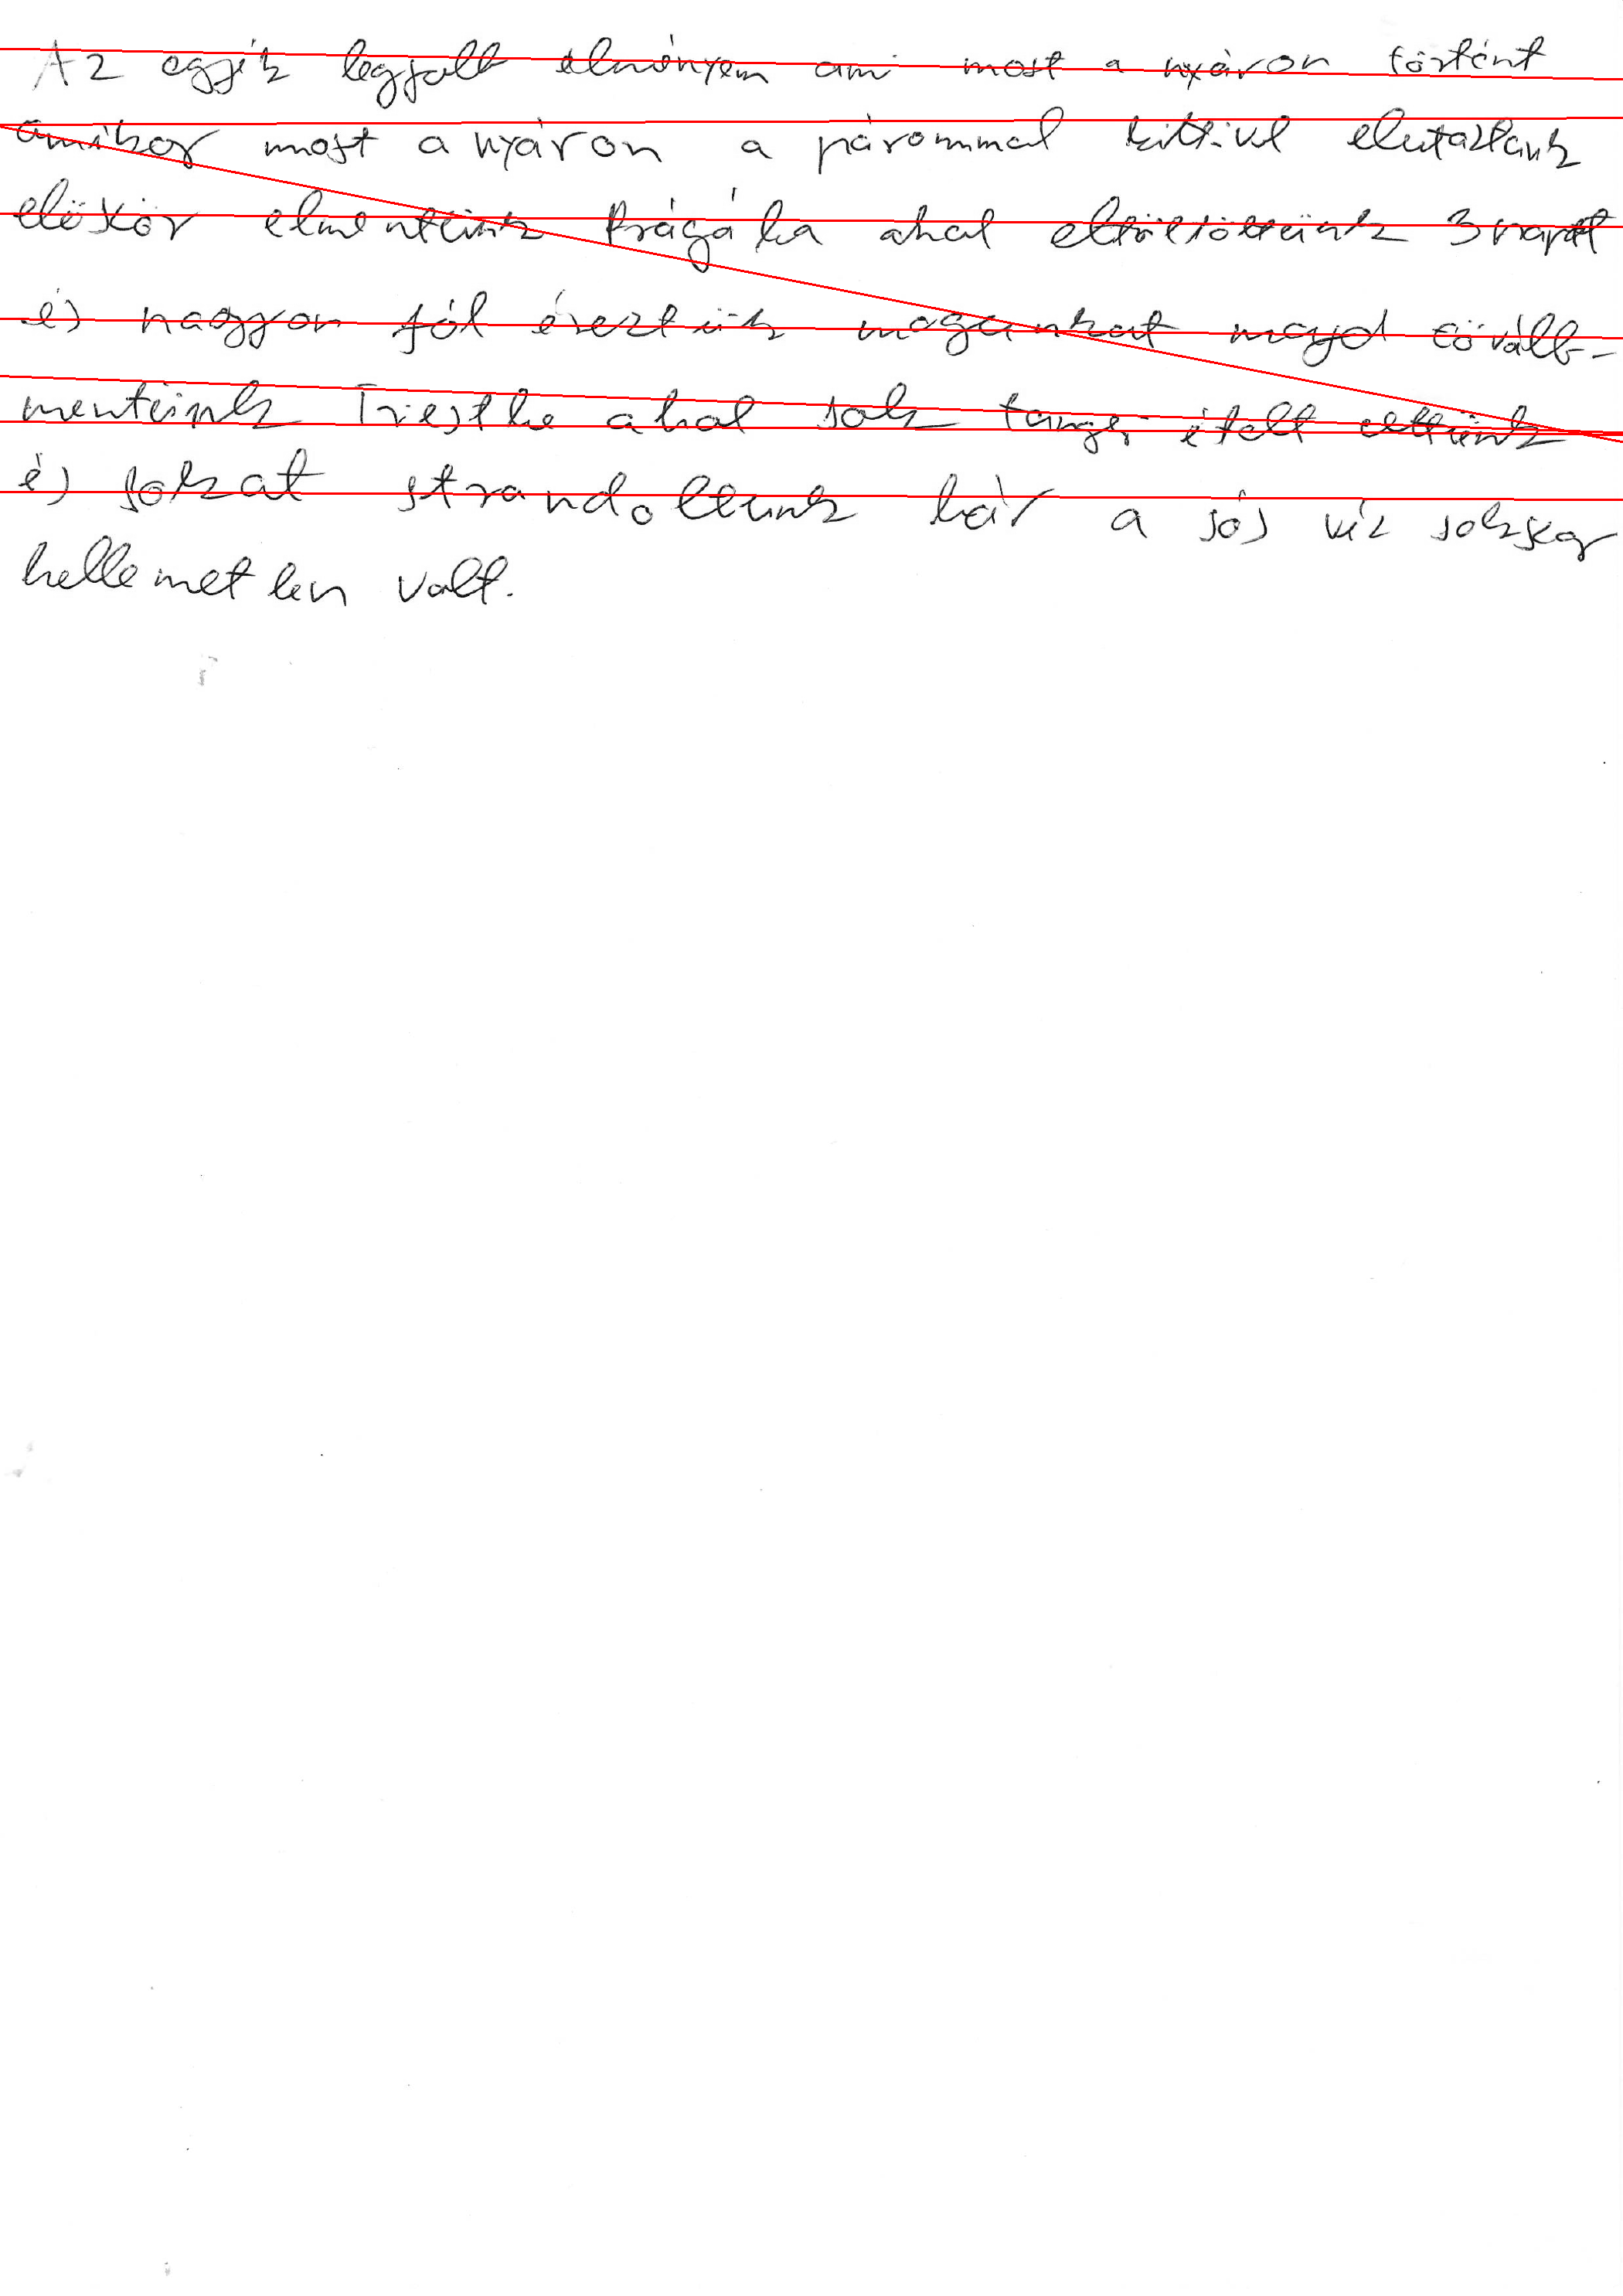 Az egyik legjobb élményem ami most a nyáron történt
amikor most a nyáron a párommal kettővel elutaztunk
elöször elmentünk Prágába ahol eltöltöttünk 3 napot
és nagyon jól éreztük magunkat majd tovább-
mentünk Triestbe ahol sok tengeri ételt ettünk
és sokat strandoltunk bár a sós víz sokszor
kellemetlen volt.